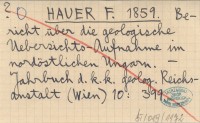 ? O HAUER F. 1859. Be-
richt über die geologische
Uebersichts-Aufnahme im
nordöstlichen Ungarn. —
Jahrbuch d. k. k. geolog. Reichs-
anstalt (Wien) 10: 399